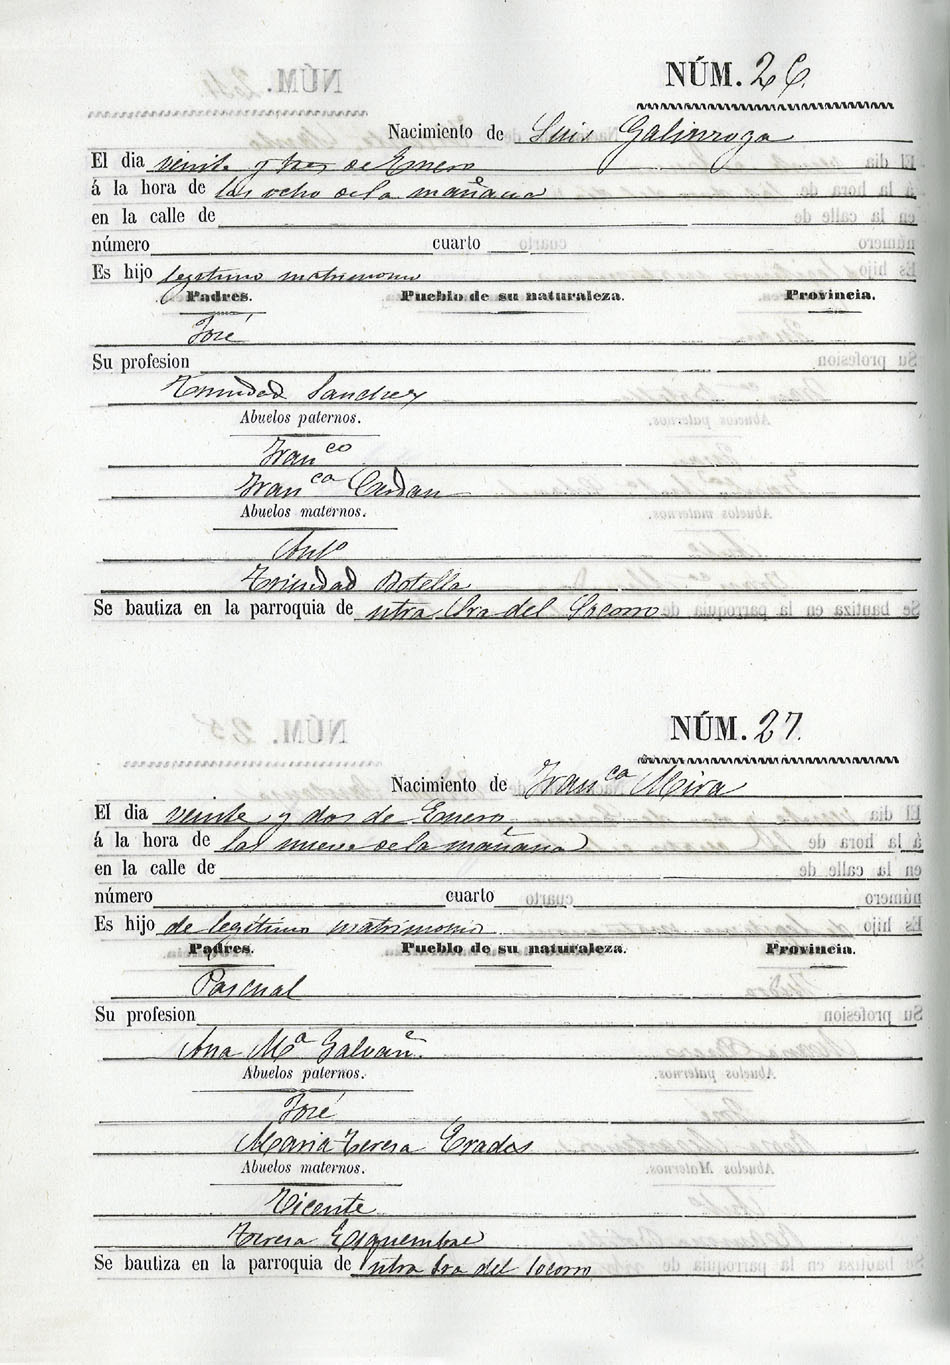 NÚM. 26.
Nacimiento de Luis Galinzoga
El dia veinte y tres de Enero
á la hora de las ocho de la mañana
en la calle de
número cuarto
Es hijo legitimo matrimonio
Padres. Pueblo de su naturaleza. Provincia.
José
Su profesion
Trinidad Sanchez
Abuelos paternos.
Franco
Franca
Abuelos maternos.
Anto
Trinidad Botella
Se bautiza en la parroquia de ntra Sra del Socorro
NÚM. 27.
Nacimiento de Franca Mira
El dia veinte y dos de Enero
á la hora de las nueve de la mañana
en la calle de
número cuarto
Es hijo de legítimo matrimonio
Padres. Pueblo de su naturaleza. Provincia.
Pascual
Su profesion
Ana Ma Galvañ.
Abuelos paternos.
José
Maria Teresa Erades
Abuelos maternos.
Vicente
Teresa Esquembre
Se bautiza en la parroquia de ntra Sra del Socorro